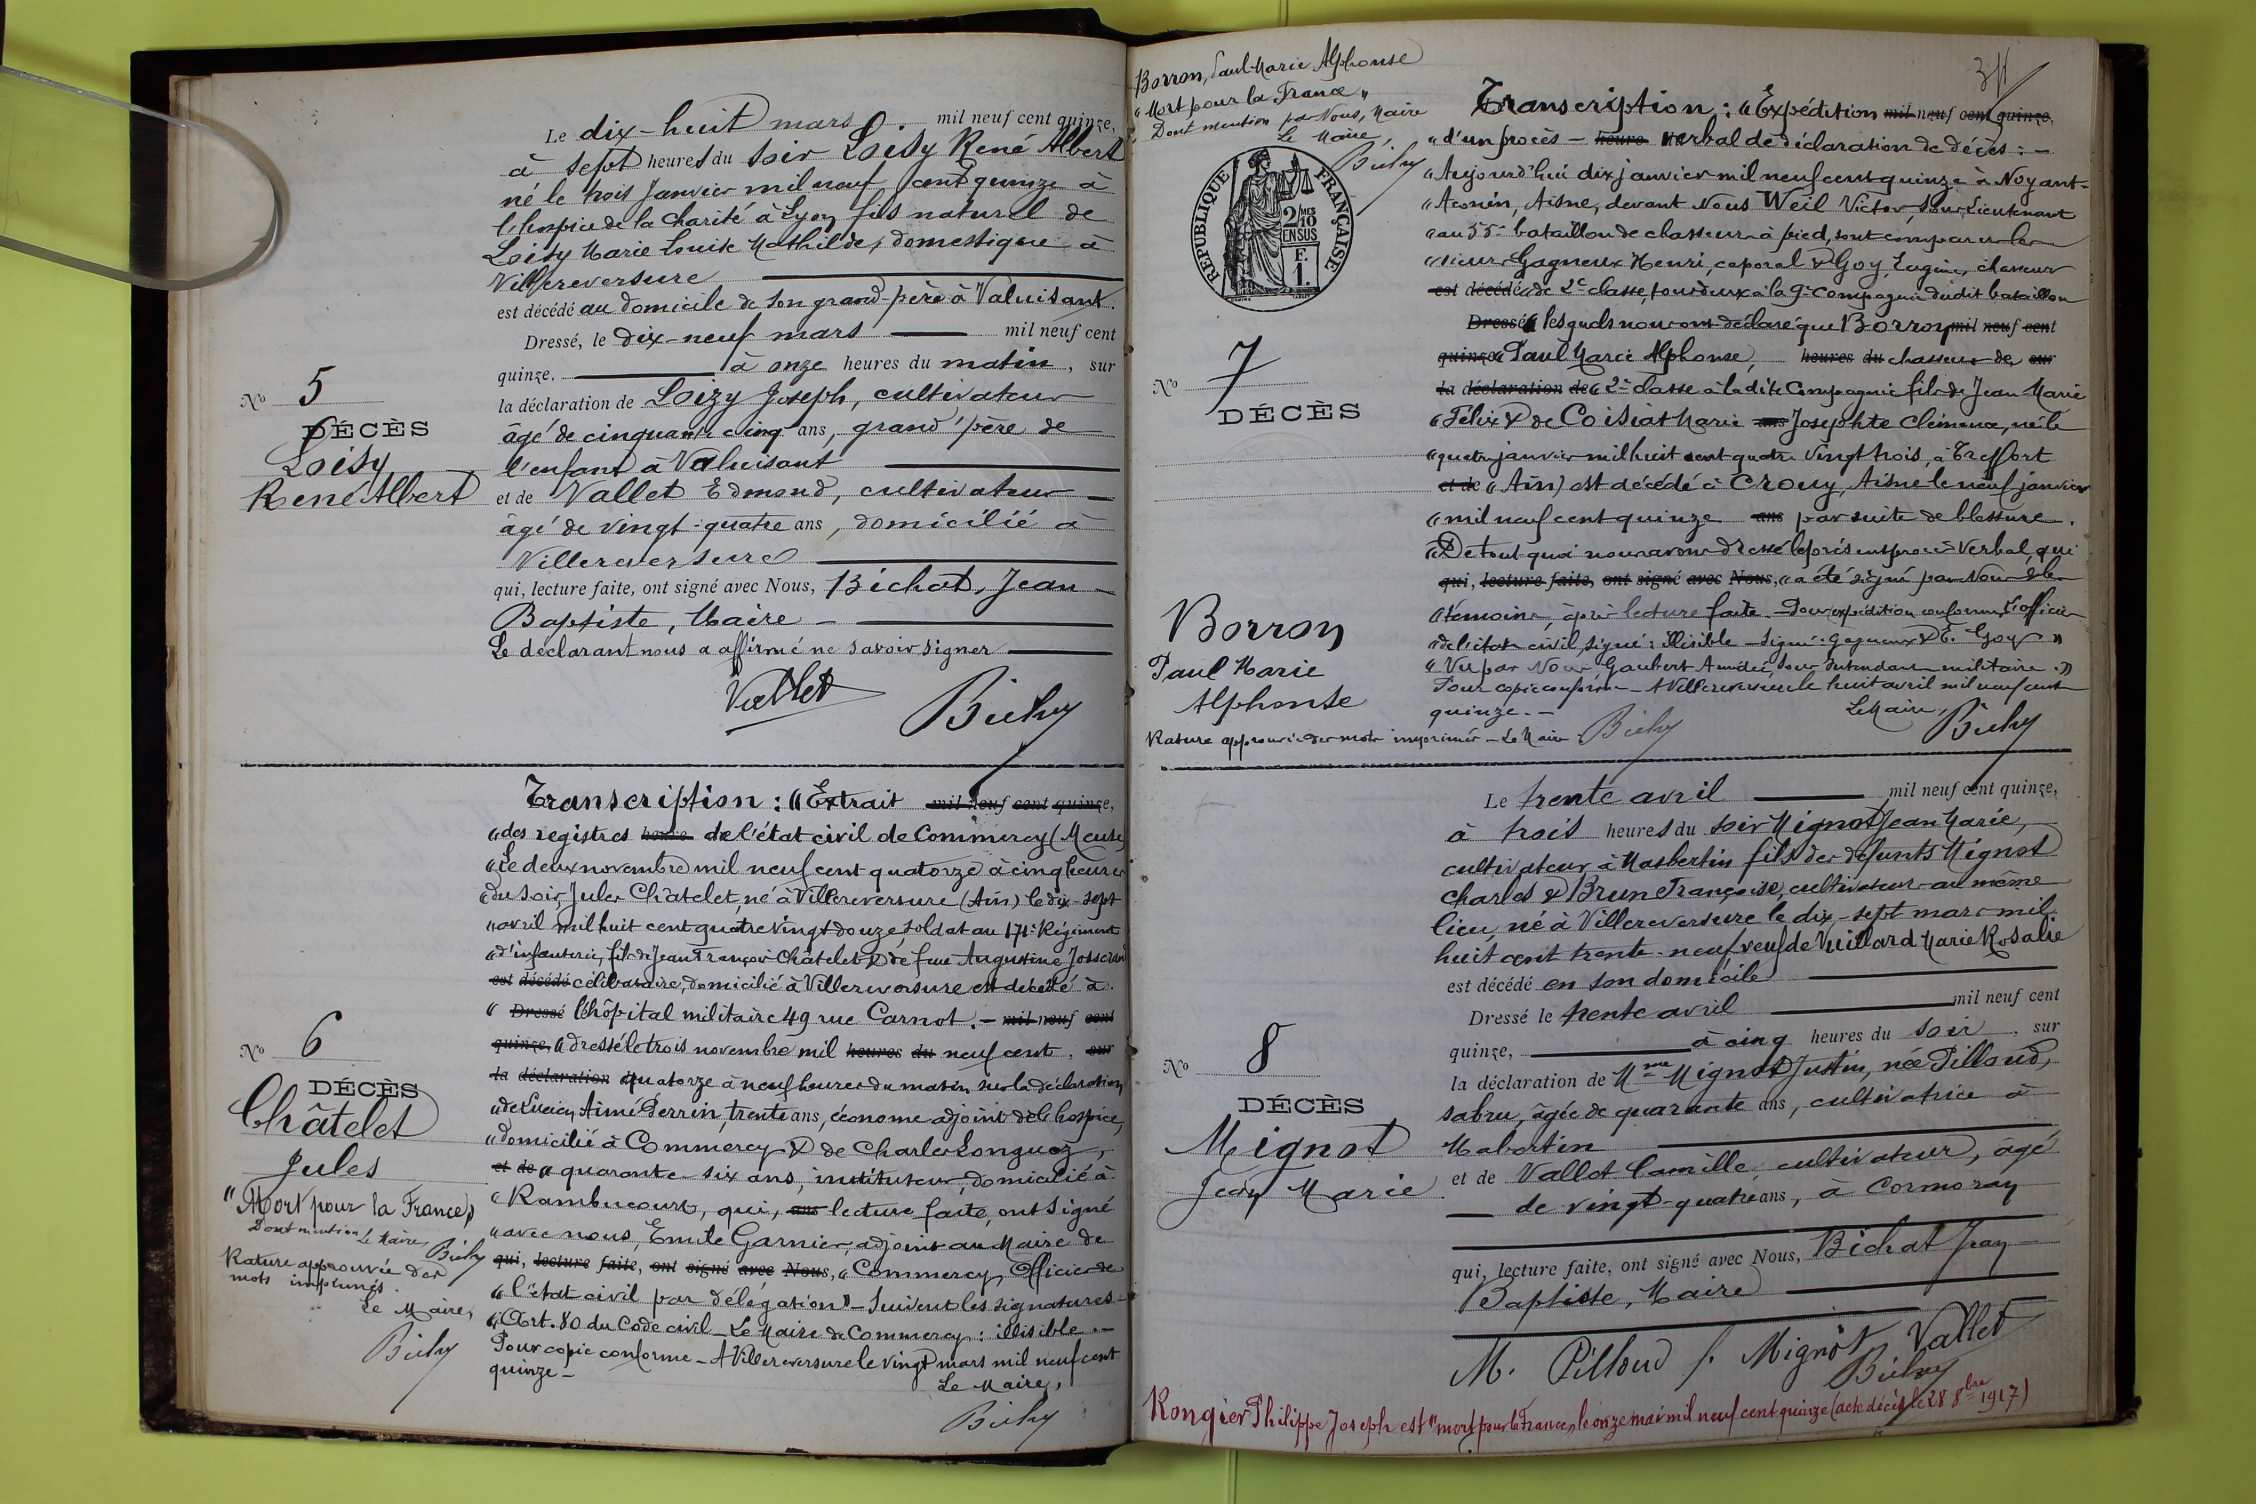 Le dix-huit mars . mil neuf cent quinze,
à sept heures du soir Loisy René Albert
né le trois Janvier mil neuf cent quinze à
l'hospice de la Charité à Lyon fils naturel de
Loisy Marie Louise Mathilde, domestique à
Villereversure
est décédé au domicile de son grand-père à Valuisant.
Dressé, le dix-neuf mars mil neuf cent
quinze. à onze heures du matin, sur
la déclaration de Loizy Joseph, cultivateur
âgé de cinquante cinq ans, grand'père de
l'enfant à Valuisant
et de Vallet Edmond, cultivateur
âgé de vingt-quatre ans, domicilié à
Villereversure
qui, lecture faite, ont signé avec Nous, Bichat, Jean
Baptiste, Maire
Le déclarant nous a affirmé ne savoir signer
Vallet
Bichat
No 5
DÉCÈS
Loisy
René Albert
Transcription : "Extrait mil neuf cent quinze,
"des registres heure de l'état civil de Commercy (Meuse)
"Le deux novembre mil neuf cent quatorze à cinq heures
"du soir, Jules Châtelet, né à Villereversure (Ain) le dix-sept
"avril mil huit cent quatre vingt douze soldat au 171e Régiment
"d'infanterie, fils de Jean François Châtelet & de feue Augustine Josserand
est décédé célibataire, domicilié à Villereversure est décédé à
" Dressé l'hôpital militaire 49 rue Carnot. - mil neuf cent
quinze, "dressé le trois novembre mil heures du neuf cent, sur
la déclaration quatorze à neuf heures du matin sur la déclaration
"de Lucien Aimé Perrin, trente ans, économe adjoint de l'hospice,
"domicilié à Commercy & de Charles Longuoz,
et de "quarante-six ans, instituteur, domicilié à
"Rambucourt, qui, ans lecture faite, ont signé
"avec nous, Emile Garnier, adjoint au Maire de
qui, lecture faite, ont signé avec Nous, "Commercy, Officier de
"l'état civil par délégation" - Suivent les signatures -
"Art. 80 du Code civil - Le Maire de Commercy : illisible. -
Pour copie conforme - A Villereversure le vingt mars mil neuf cent
quinze -
Le Maire,
Bichat
No 6
DÉCÈS
Châtelet
Jules
"Mort pour la France"
Dont mention Le Maire, Bichat
Rature approuvée des
mots imprimés.
Le Maire,
Bichat
Borron, Paul Marie Alphonse
"Mort pour la France"
Dont mention par Nous, Maire
Le Maire,
Bichat
RÉPUBLIQUE FRANÇAISE
2/10 MES EN SUS
F. 1.
Transcription : "Expédition mil neuf cent quinze,
"d'un procès - heure verbal de déclaration de décès : -
"Aujourd'hui dix janvier mil neuf cent quinze à Noyant-
"Aconin, Aisne, devant Nous Weil Victor, Sous Lieutenant
"au 55e bataillon de chasseurs à pied, sont comparus les
"sieurs Gagneux Henri, caporal & Goy Eugène, chasseur
est décédé "de 2e classe, tous deux à la 9e Compagnie dudit bataillon
Dressé "lesquels nous ont déclaré que Borron mil neuf cent
quinze "Paul Marie Alphonse, heures du chasseur de sur
la déclaration de "2e classe à la dite Compagnie fils de Jean Marie
"Félix & de Coisiat Marie ans Josephte Clémence, né le
"quatre janvier mil huit cent quatre vingt trois, à Treffort
et de "(Ain) est décédé à Crouy, Aisne le neuf janvier
"mil neuf cent quinze ans par suite de blessure.
"De tout quoi nous avons dressé le présent procès verbal, qui
qui, lecture faite, ont signé avec Nous, "a été signé par Nous & les
"témoins, après lecture faite. - Pour expédition conforme, l'officier
"de l'état civil, signé : illisible - Signé : Gagneux & E. Goy"
"Vu par Nous, Gaubert Amédée, Sous Intendant militaire."
Pour copie conforme - A Villereversure le huit avril mil neuf cent
quinze. -
Le Maire,
Bichat
Rature approuvée des mots imprimés - Le Maire Bichat
No 7
DÉCÈS
Borron
Paul Marie
Alphonse
Le trente avril mil neuf cent quinze,
à trois heures du soir Mignot Jean Marie,
cultivateur, à Masbertin fils des défunts Mignot
Charles & Brun Françoise, cultivateurs au même
lieu, né à Villereversure le dix-sept mars mil
huit cent trente-neuf veuf de Vuillard Marie Rosalie
est décédé en son domicile
Dressé le trente avril mil neuf cent
quinze, à cinq heures du soir, sur
la déclaration de Mme Mignot Justin, née Pilloud,
sa bru, âgée de quarante ans, cultivatrice à
Mabertin
et de Vallet Camille cultivateur, âgé
de vingt-quatre ans, à Cormoran
qui, lecture faite, ont signé avec Nous, Bichat Jean
Baptiste, Maire
M. Pilloud f. Mignot Vallet
Bichat
No 8
DÉCÈS
Mignot
Jean Marie
Rongier Philippe Joseph est "mort pour la France" le onze mai mil neuf cent quinze (acte décès le 28 8bre 1917)